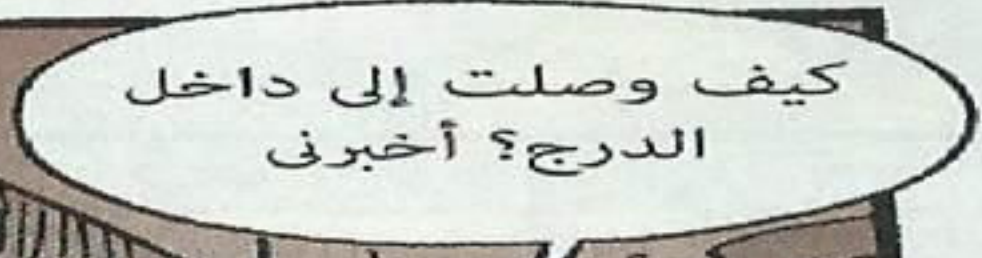 كيف وصلت إلى داخل
الدرج؟ أخبرنى